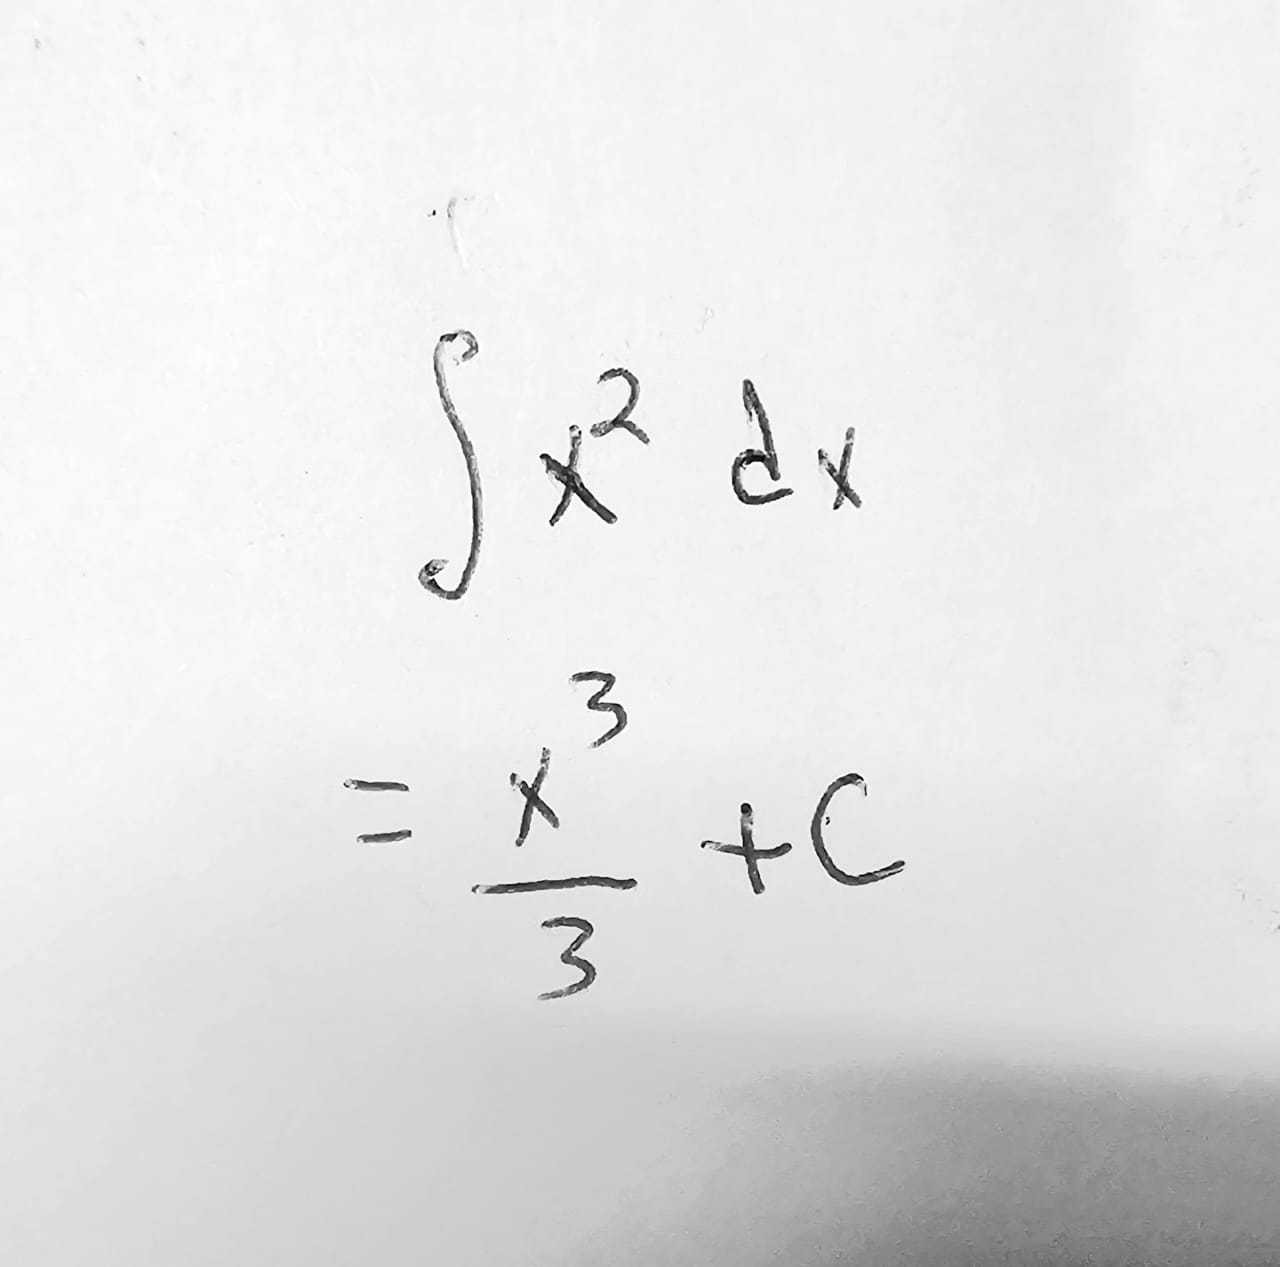 ∫ x² dx
= x³/3 + C